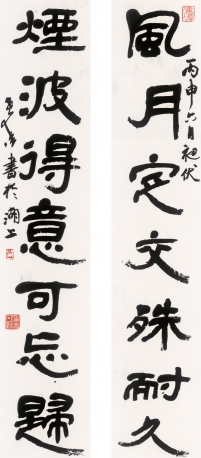 風月定交殊耐久
丙申六月初伏
煙波得意可忘歸
書於湖上